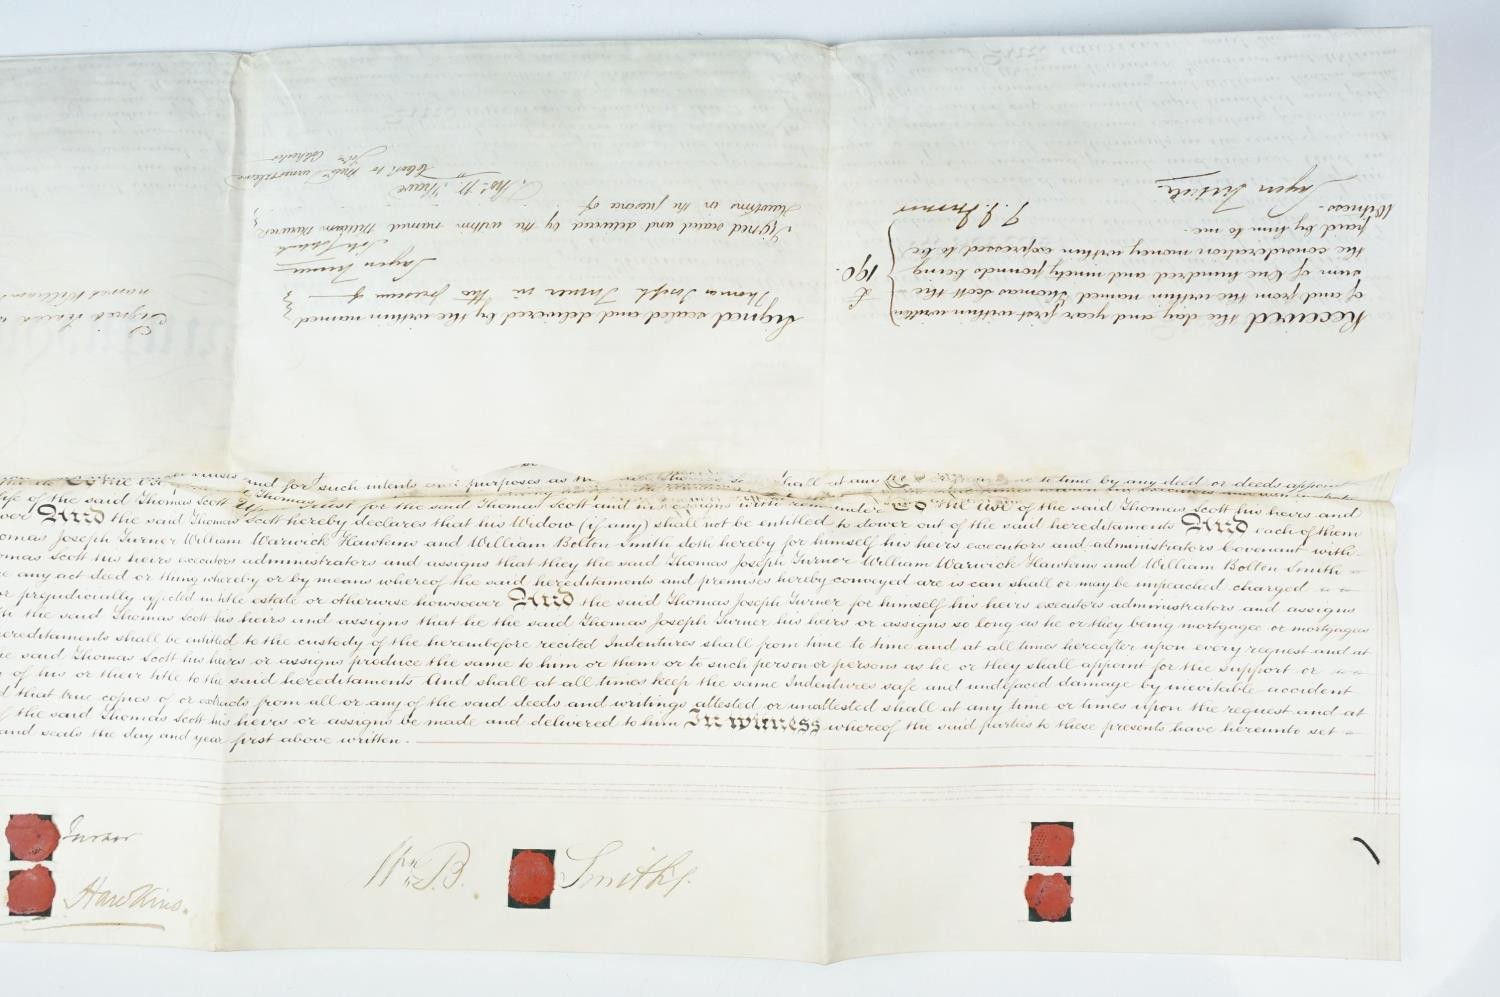 Received the day and year first within written
of and from the within named Thomas Scott the
sum of One hundred and ninety pounds being
the consideration money within expressed to be
paid by him to me.
£ 190.
Witness.
T. J. Turner
Signed sealed and delivered by the within named
Thomas Joseph Turner in the presence of
Signed sealed and delivered by the within named William Warwick
Hawkins in the presence of
Thos. W.
Clerk to
Signed
named William
and for such intents and purposes as shall at any time to time by any deed or deeds appoint
life of the said Thomas Scott in trust for the said Thomas Scott and his assigns with remainder To the use of the said Thomas Scott his heirs and
And the said Thomas Scott hereby declares that his Widow (if any) shall not be entitled to dower out of the said hereditaments And each of them
Thomas Joseph Turner William Warwick Hawkins and William Bolton Smith doth hereby for himself his heirs executors and administrators Covenant with
Thomas Scott his heirs executors administrators and assigns that they the said Thomas Joseph Turner William Warwick Hawkins and William Bolton Smith
any act deed or thing whereby or by means whereof the said hereditaments and premises hereby conveyed are is can shall or may be impeached charged
or prejudicially affected in title estate or otherwise howsoever And the said Thomas Joseph Turner for himself his heirs executors administrators and assigns
the said Thomas Scott his heirs and assigns that he the said Thomas Joseph Turner his heirs or assigns so long as he or they being mortgagee or mortgagees
hereditaments shall be entitled to the custody of the hereinbefore recited Indentures shall from time to time and at all times hereafter upon every request and at
the said Thomas Scott his heirs or assigns produce the same to him or them or to such person or persons as he or they shall appoint for the support or
of his or their title to the said hereditaments And shall at all times keep the same Indentures safe and undefaced damage by inevitable accident
that true copies of or extracts from all or any of the said deeds and writings attested or unattested shall at any time or times upon the request and at
of the said Thomas Scott his heirs or assigns be made and delivered to him In witness whereof the said parties to these presents have hereunto set
and seals the day and year first above written.
Turner
Hawkins.
Wm. B. Smith